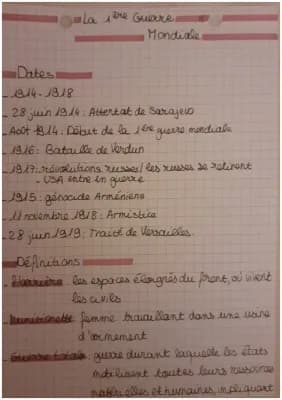 La 1ère Guerre
Mondiale
Dates
- 1914-1918
- 28 juin 1914: Attentat de Sarajevo
- Août 1914: Début de la 1ère guerre mondiale
- 1916: Bataille de Verdun
- 1917: révolutions russes/les russes se retirent
- USA entre en guerre
- 1915: génocide Arménien
- 11 novembre 1918: Armistice
- 28 juin 1919: Traité de Versailles.
Définitions
- L'arrière: les espaces éloignés du front, où vivent
les civils
- Munitionette: femme travaillant dans une usine
d'armement
- Guerre totale: guerre durant laquelle les États
mobilisent toutes leurs ressources
matérielles et humaines, impliquant